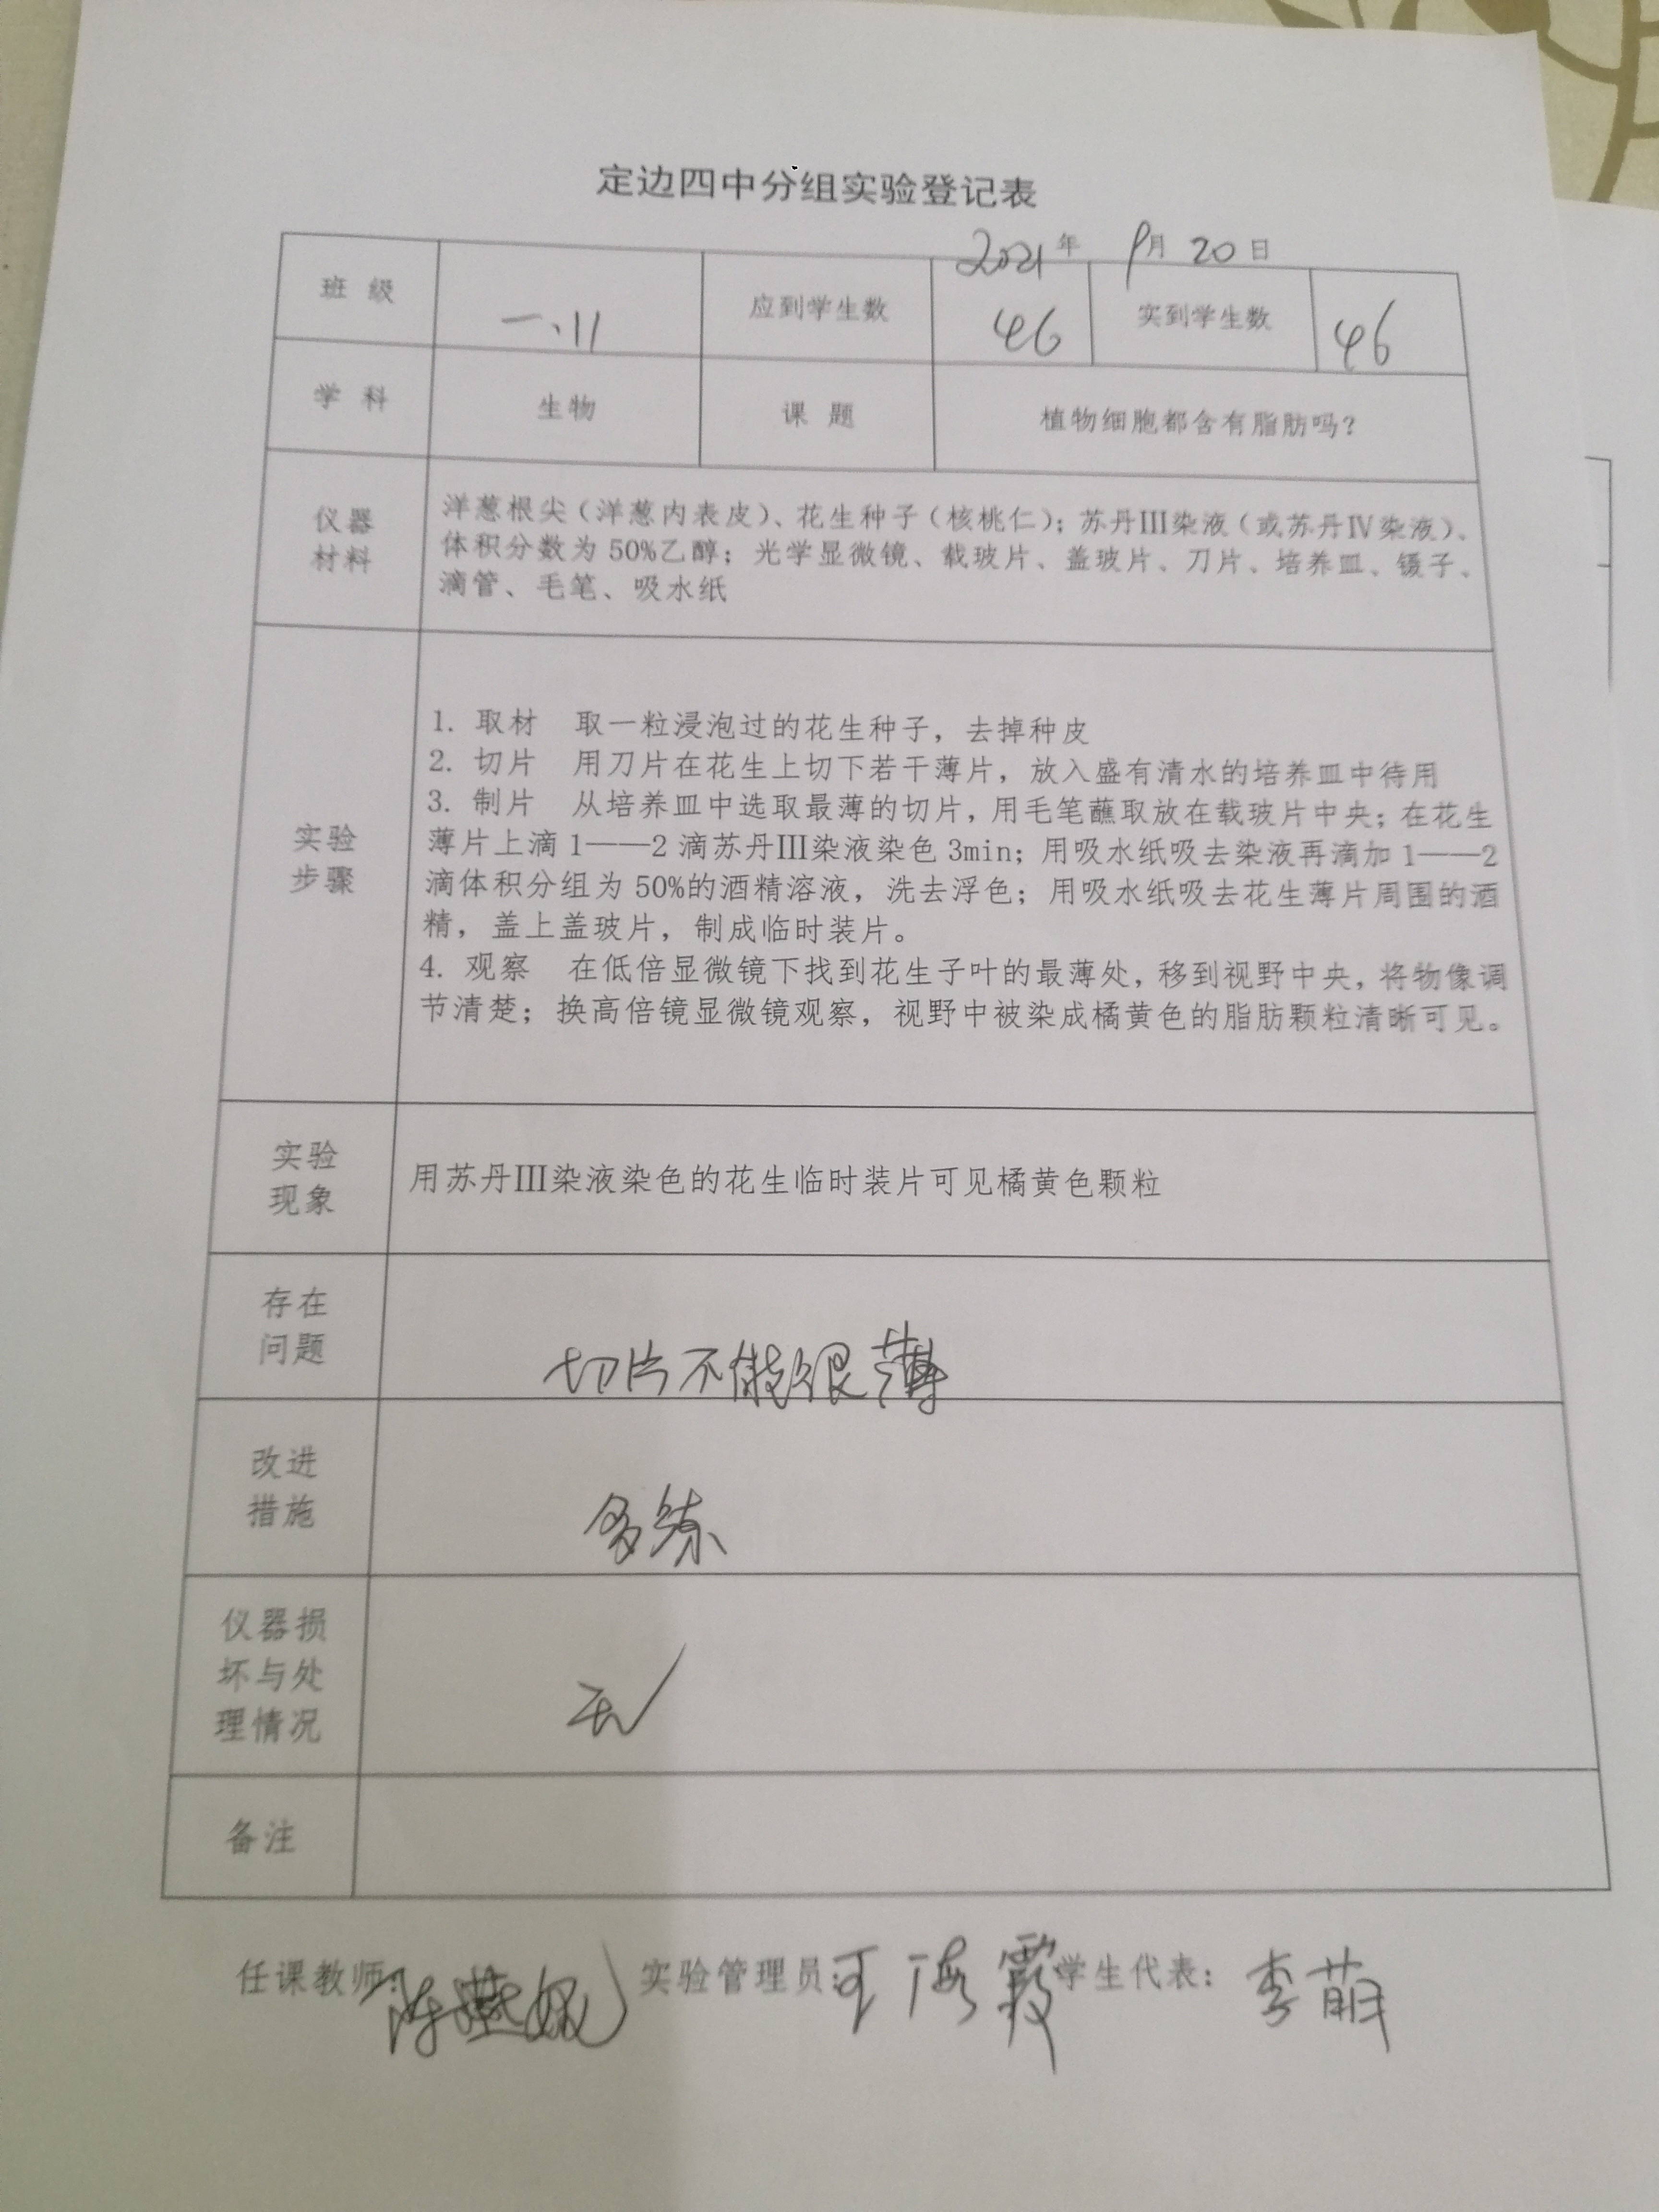 定边四中分组实验登记表
2021年 9月 20日
班 级 一.11 应到学生数 46 实到学生数 46
学 科 生物 课 题 植物细胞都含有脂肪吗？
仪器
材料
洋葱根尖（洋葱内表皮）、花生种子（核桃仁）；苏丹Ⅲ染液（或苏丹Ⅳ染液）、
体积分数为 50%乙醇；光学显微镜、载玻片、盖玻片、刀片、培养皿、镊子、
滴管、毛笔、吸水纸
实验
步骤
1. 取材 取一粒浸泡过的花生种子，去掉种皮
2. 切片 用刀片在花生上切下若干薄片，放入盛有清水的培养皿中待用
3. 制片 从培养皿中选取最薄的切片，用毛笔蘸取放在载玻片中央；在花生
薄片上滴 1——2 滴苏丹Ⅲ染液染色 3min；用吸水纸吸去染液再滴加 1——2
滴体积分组为 50%的酒精溶液，洗去浮色；用吸水纸吸去花生薄片周围的酒
精，盖上盖玻片，制成临时装片。
4. 观察 在低倍显微镜下找到花生子叶的最薄处，移到视野中央，将物像调
节清楚；换高倍镜显微镜观察，视野中被染成橘黄色的脂肪颗粒清晰可见。
实验
现象
用苏丹Ⅲ染液染色的花生临时装片可见橘黄色颗粒
存在
问题
切片不能很薄
改进
措施
多练
仪器损
坏与处
理情况
无
备注
任课教师： 实验管理员：王海霞 学生代表：李萌